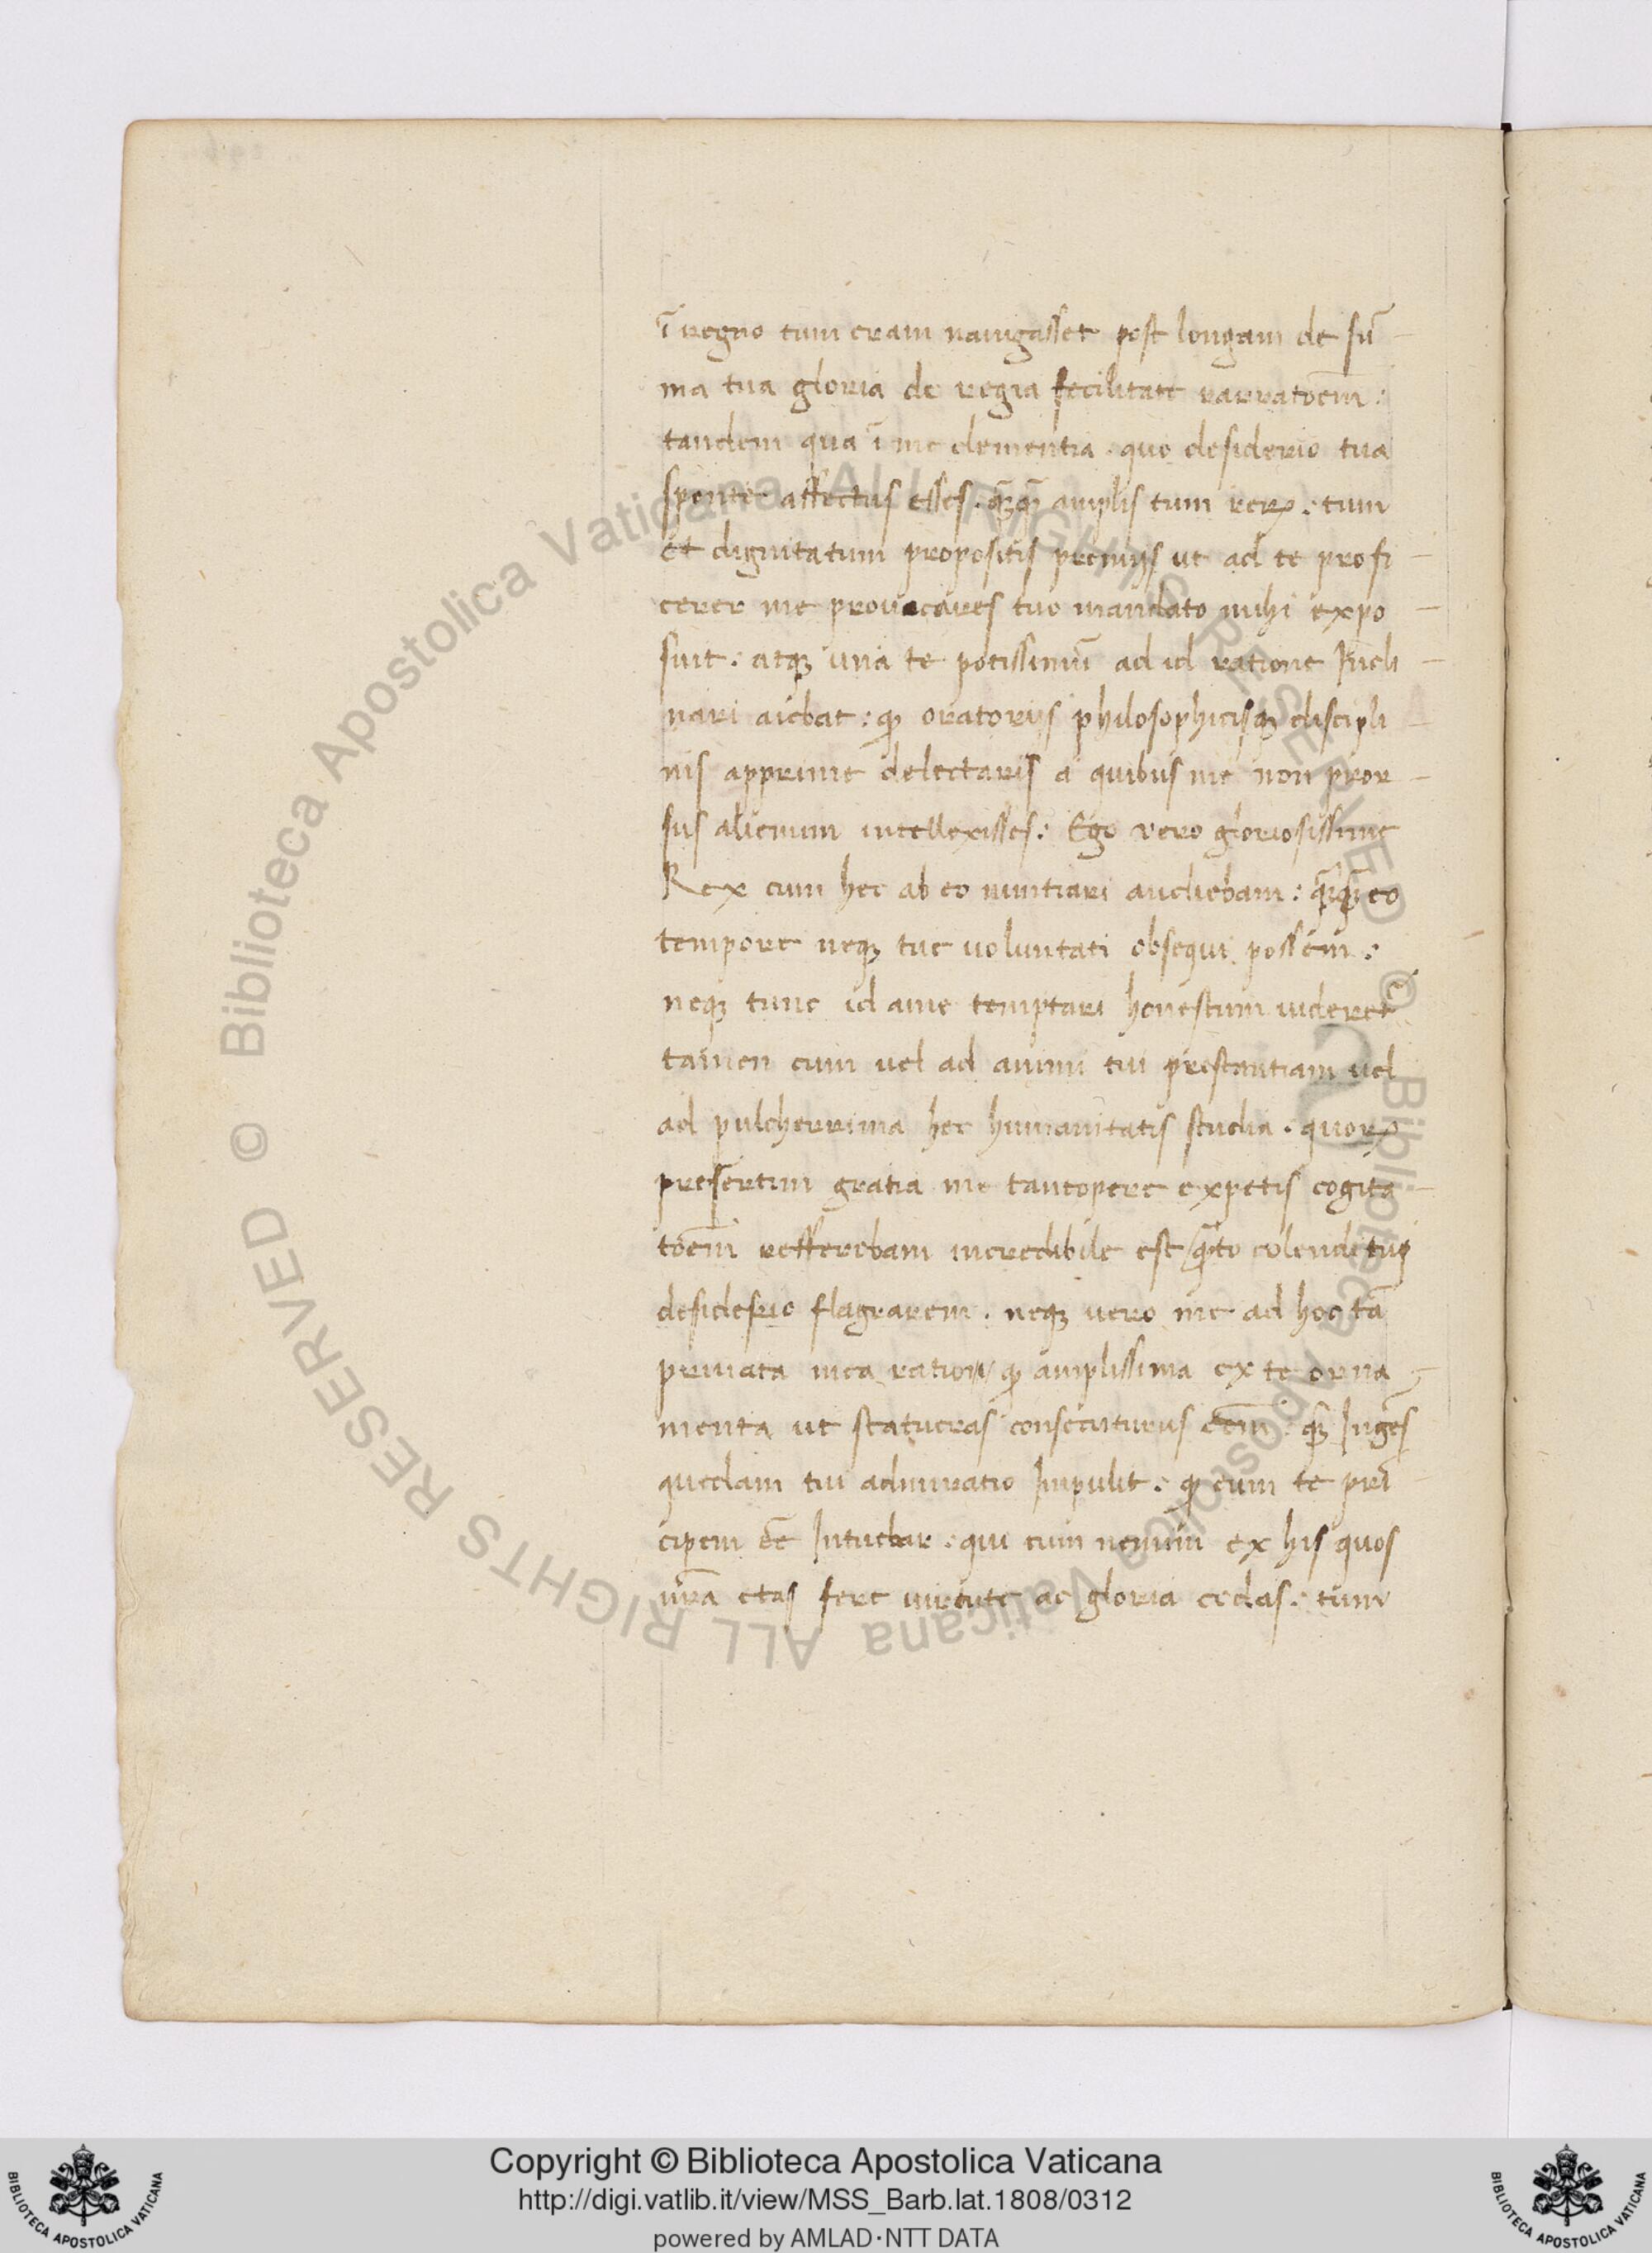 ī regno tum eram nauigasset post longam de sū
ma tua gloria de regia fecilitate narratoēm:
tandem qua ī me clementia. quo desiderio tua
sponte affectus esses. quāq̄ amplis tum rerꝝ: tum
et dignitatum propositis premijs ut ad te profi
cerer me prouocares tuo mandato mihi expo
suit: atqꝫ una te potissimū ad id ratione Incli
nari aiebat: ꝙ oratorijs philosophicisqꝫ discipli
nis apprime delectaris a quibus me non pror
sus alienum intellexisses: Ego vero gloriosissime
Rex cum hec ab eo nuntiari audiebam: quāq̄ eo
tempore neqꝫ tue uoluntati obsequi possem:
neqꝫ tunc id a me temptari honestum uideret̄
tamen cum uel ad animi tui prestantiam uel
ad pulcherrima hec humanitatis studia. quorꝝ
presertim gratia me tantopere expetis cogita
toēm refferebam incredibile est q̄to colendi tui
desiderio flagrarem. neqꝫ uero me ad hoc tā
priuata mea ratio ꝙ amplissima ex te orna
menta ut statueras consecuturus eēm: q̄ Ingēs
quedam tui admiratio Impulit: ꝙ eum te prī
cipem eē Intuebar. qui cum nemini ex his quos
nr̄a etas fere uirtute ac gloria cedas: tum
Copyright © Biblioteca Apostolica Vaticana
http://digi.vatlib.it/view/MSS_Barb.lat.1808/0312
powered by AMLAD·NTT DATA
BIBLIOTECA APOSTOLICA VATICANA
BIBLIOTECA APOSTOLICA VATICANA
© Biblioteca Apostolica Vaticana ALL RIGHTS RESERVED © Biblioteca Apostolica Vaticana ALL RIGHTS RESERVED